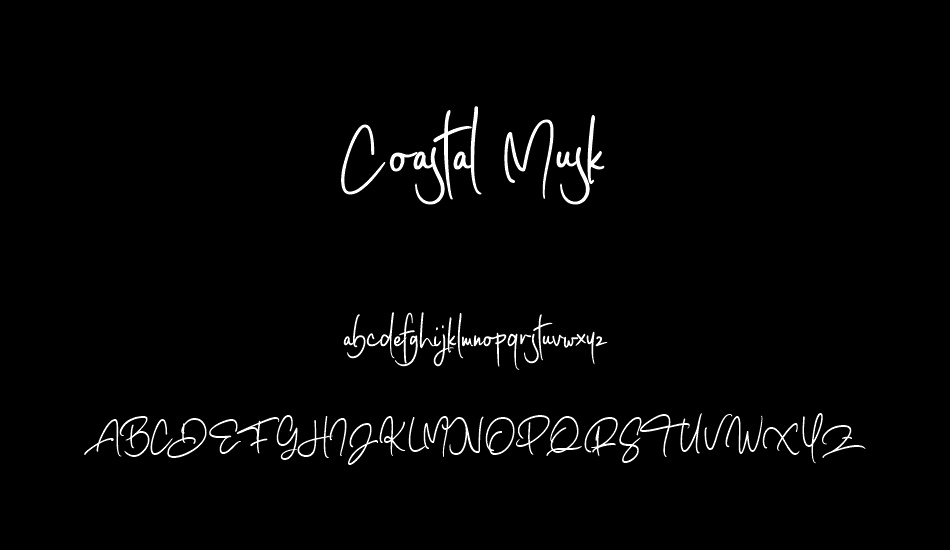 Coastal Musk
abcdefghijklmnopqrstuvwxyz
ABCDEFGHIJKLMNOPQRSTUVWXYZ